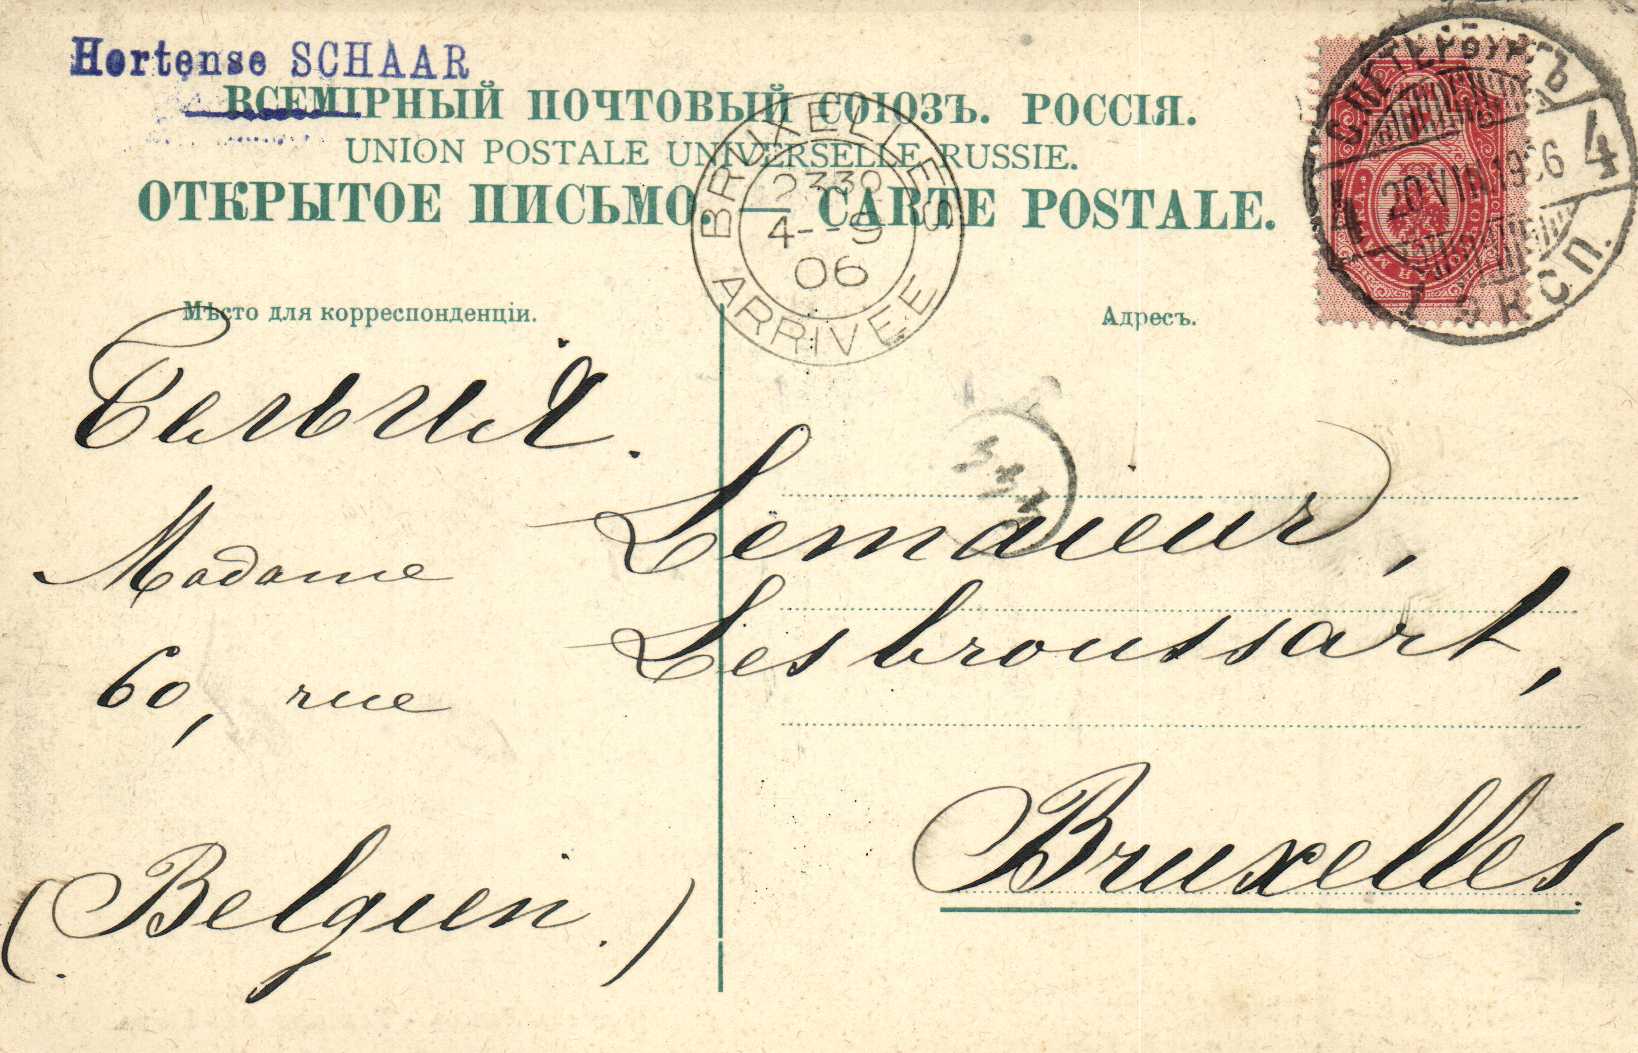 Hortense SCHAAR
ВСЕМІРНЫЙ ПОЧТОВЫЙ СОЮЗЪ. РОССІЯ.
UNION POSTALE UNIVERSELLE RUSSIE.
ОТКРЫТОЕ ПИСЬМО. — CARTE POSTALE.
BRUXELLES
4--9
06
ARRIVEE
С.ПЕТЕРБУРГЪ
4 20 VIII 1906 4
Мѣсто для корреспонденціи.
Адресъ.
Бельгия.
Madame Lemaieur,
60, rue Lesbroussart,
Bruxelles
(Belgien.)